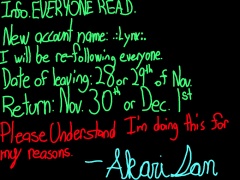 Info. EVERYONE READ.
New account name: .:Lynx:.
I will be re-following everyone.
Date of leaving: 28 or 29th of Nov.
Return: Nov. 30th or Dec. 1st
Please Understand I'm doing this for
my reasons.
-Akari San